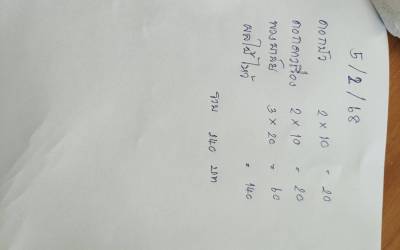 5/2/68
ดอกบัว 2 x 10 = 20
ดอกดาวเรือง 2 x 10 = 20
พวงมาลัย 3 x 20 = 60
ผลไม้ไหว้ = 140
รวม 240 บาท